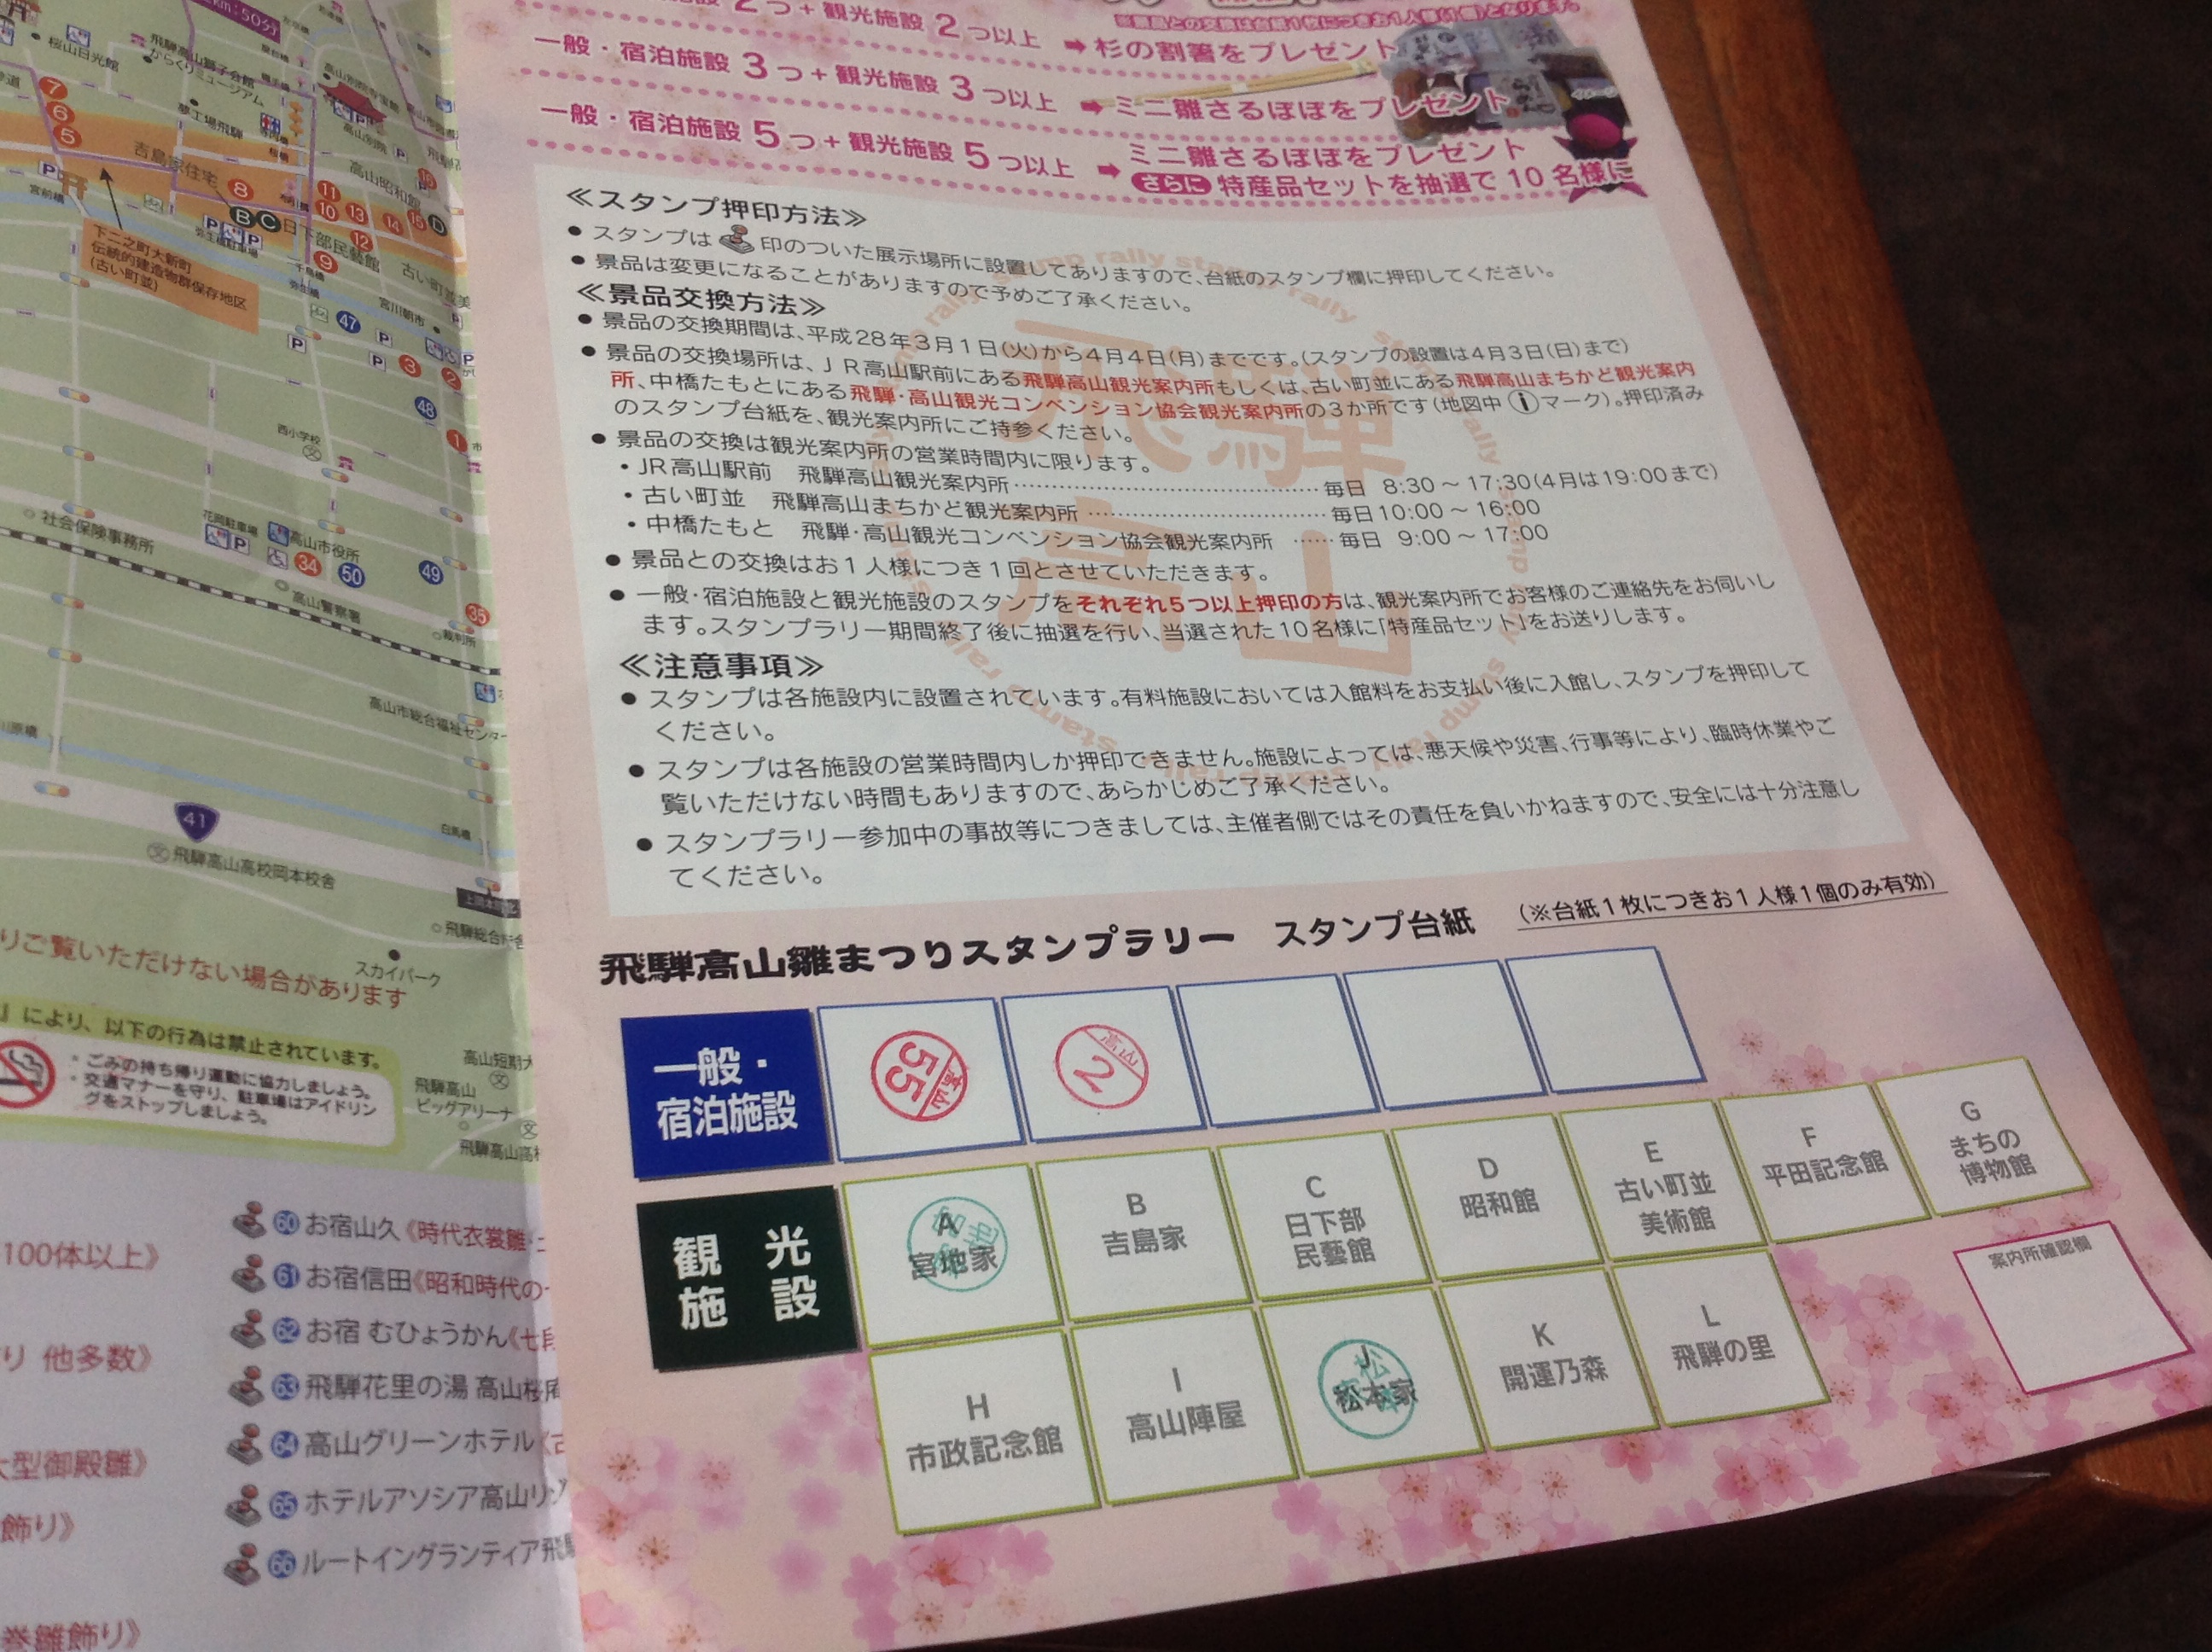 2つ+観光施設 2つ以上 ➡ 杉の割箸をプレゼント
一般・宿泊施設 3つ+観光施設 3つ以上 ➡ ミニ雛さるぼぼをプレゼント
一般・宿泊施設 5つ+観光施設 5つ以上 ➡ ミニ雛さるぼぼをプレゼント
さらに 特産品セットを抽選で10名様に
≪スタンプ押印方法≫
● スタンプは 印のついた展示場所に設置してありますので、台紙のスタンプ欄に押印してください。
● 景品は変更になることがありますので予めご了承ください。
≪景品交換方法≫
● 景品の交換期間は、平成28年3月1日(火)から4月4日(月)までです。(スタンプの設置は4月3日(日)まで)
● 景品の交換場所は、JR高山駅前にある飛騨高山観光案内所もしくは、古い町並にある飛騨高山まちかど観光案内
所、中橋たもとにある飛騨・高山観光コンベンション協会観光案内所の3か所です(地図中 i マーク)。押印済み
のスタンプ台紙を、観光案内所にご持参ください。
● 景品の交換は観光案内所の営業時間内に限ります。
・JR高山駅前 飛騨高山観光案内所……毎日 8:30～17:30(4月は19:00まで)
・古い町並 飛騨高山まちかど観光案内所……毎日10:00～16:00
・中橋たもと 飛騨・高山観光コンベンション協会観光案内所……毎日 9:00～17:00
● 景品との交換はお1人様につき1回とさせていただきます。
● 一般・宿泊施設と観光施設のスタンプをそれぞれ5つ以上押印の方は、観光案内所でお客様のご連絡先をお伺いし
ます。スタンプラリー期間終了後に抽選を行い、当選された10名様に「特産品セット」をお送りします。
≪注意事項≫
● スタンプは各施設内に設置されています。有料施設においては入館料をお支払い後に入館し、スタンプを押印して
ください。
● スタンプは各施設の営業時間内しか押印できません。施設によっては、悪天候や災害、行事等により、臨時休業やご
覧いただけない時間もありますので、あらかじめご了承ください。
● スタンプラリー参加中の事故等につきましては、主催者側ではその責任を負いかねますので、安全には十分注意し
てください。
飛騨高山
stamp rally
飛騨高山雛まつりスタンプラリー スタンプ台紙 (※台紙1枚につきお1人様1個のみ有効)
一般・
宿泊施設
高山 55
高山 2
観光
施設
A
宮地家
B
吉島家
C
日下部
民藝館
D
昭和館
E
古い町並
美術館
F
平田記念館
G
まちの
博物館
H
市政記念館
I
高山陣屋
J
松本家
K
開運乃森
L
飛騨の里
案内所確認欄
桜山日光館
飛騨高山獅子会館
からくりミュージアム
夢工場飛騨
高山別院
吉島家住宅
高山昭和館
日下部民藝館
宮前橋
下二之町大新町
伝統的建造物群保存地区
(古い町並)
宮川朝市
西小学校
社会保険事務所
花岡駐車場
高山市役所
高山警察署
裁判所
高山市総合福祉センター
41
飛騨高山高校岡本校舎
白馬橋
スカイパーク
りご覧いただけない場合があります
により、以下の行為は禁止されています。
・ごみの持ち帰り運動に協力しましょう。
・交通マナーを守り、駐車場はアイドリン
グをストップしましょう。
高山短期大
飛騨高山
ビッグアリーナ
100体以上》
り 他多数》
大型御殿雛》
飾り》
巻雛飾り》
60 お宿山久《時代衣裳雛
61 お宿信田《昭和時代の
62 お宿 むひょうかん《七段
63 飛騨花里の湯 高山桜庵
64 高山グリーンホテル《古
65 ホテルアソシア高山リゾ
66 ルートイングランティア飛騨